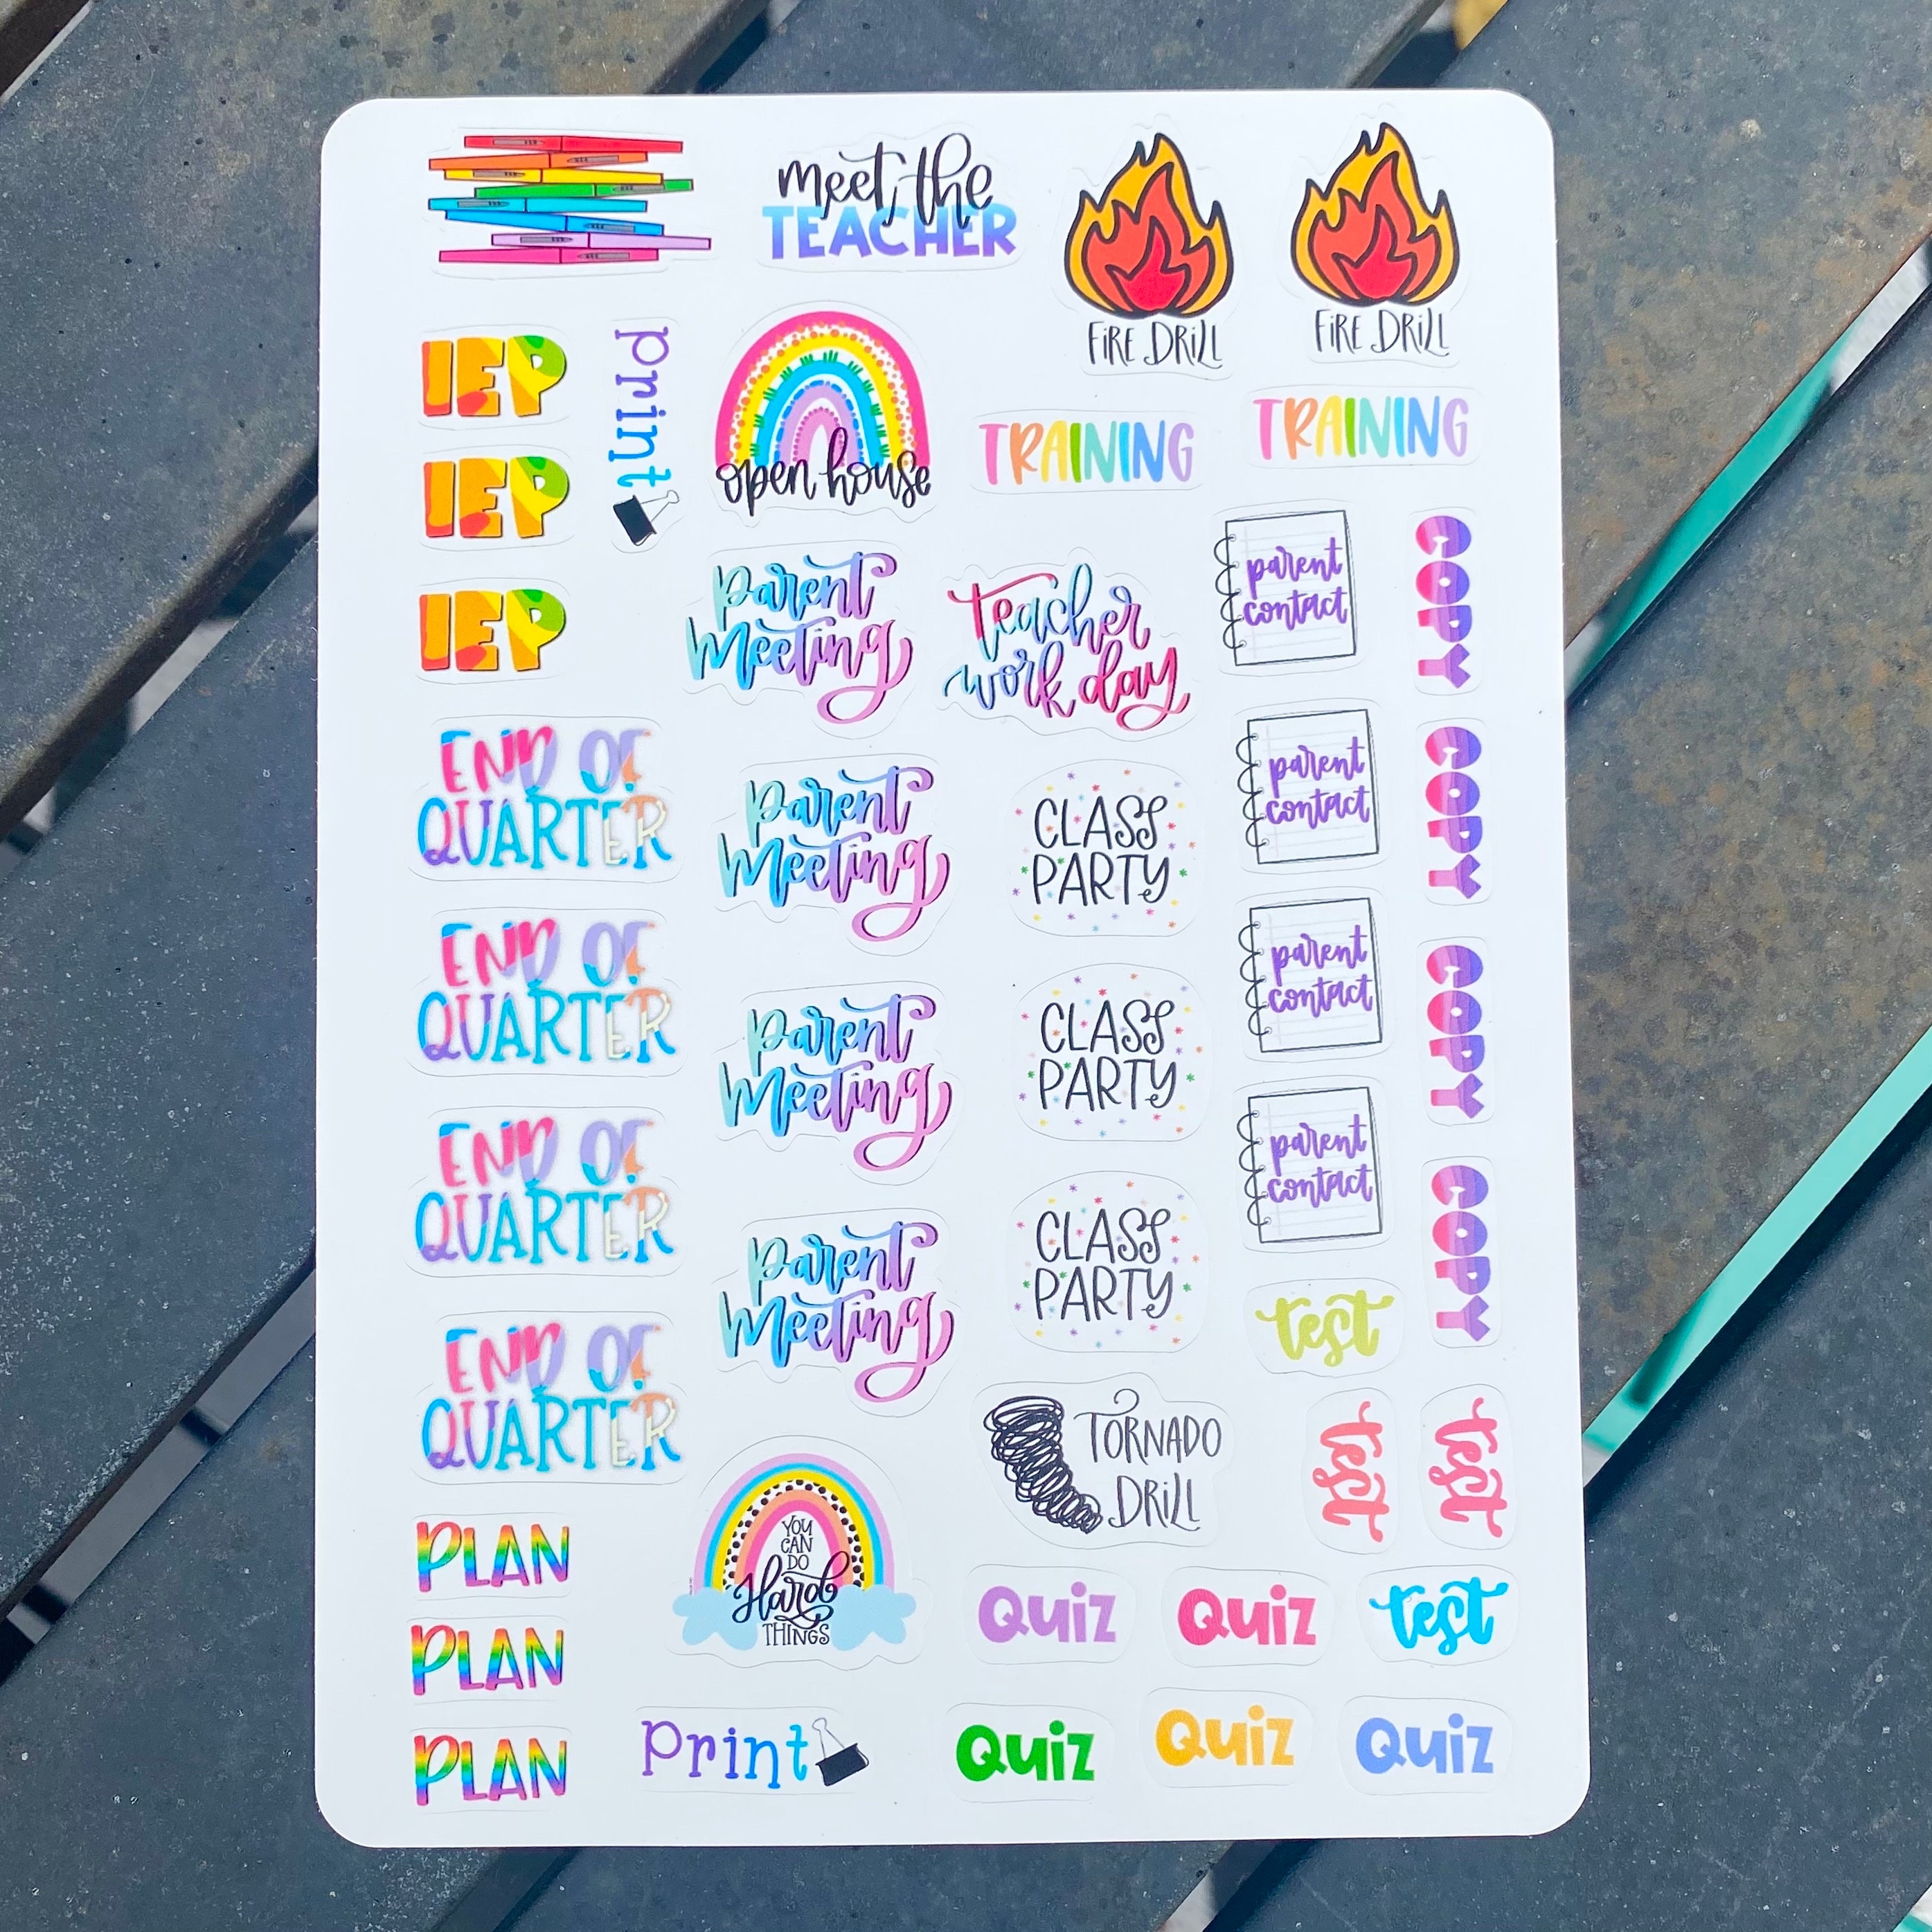 meet the
TEACHER
FIRE DRILL
FIRE DRILL
IEP
print
open house
TRAINING
TRAINING
IEP
IEP
parent
meeting
teacher
work day
parent
contact
COPY
END OF
QUARTER
parent
meeting
CLASS
PARTY
parent
contact
COPY
END OF
QUARTER
parent
meeting
CLASS
PARTY
parent
contact
COPY
END OF
QUARTER
parent
meeting
CLASS
PARTY
parent
contact
COPY
test
END OF
QUARTER
TORNADO
DRILL
test
test
PLAN
YOU
CAN
DO
Hard
THINGS
Quiz
Quiz
test
PLAN
PLAN
print
Quiz
Quiz
Quiz